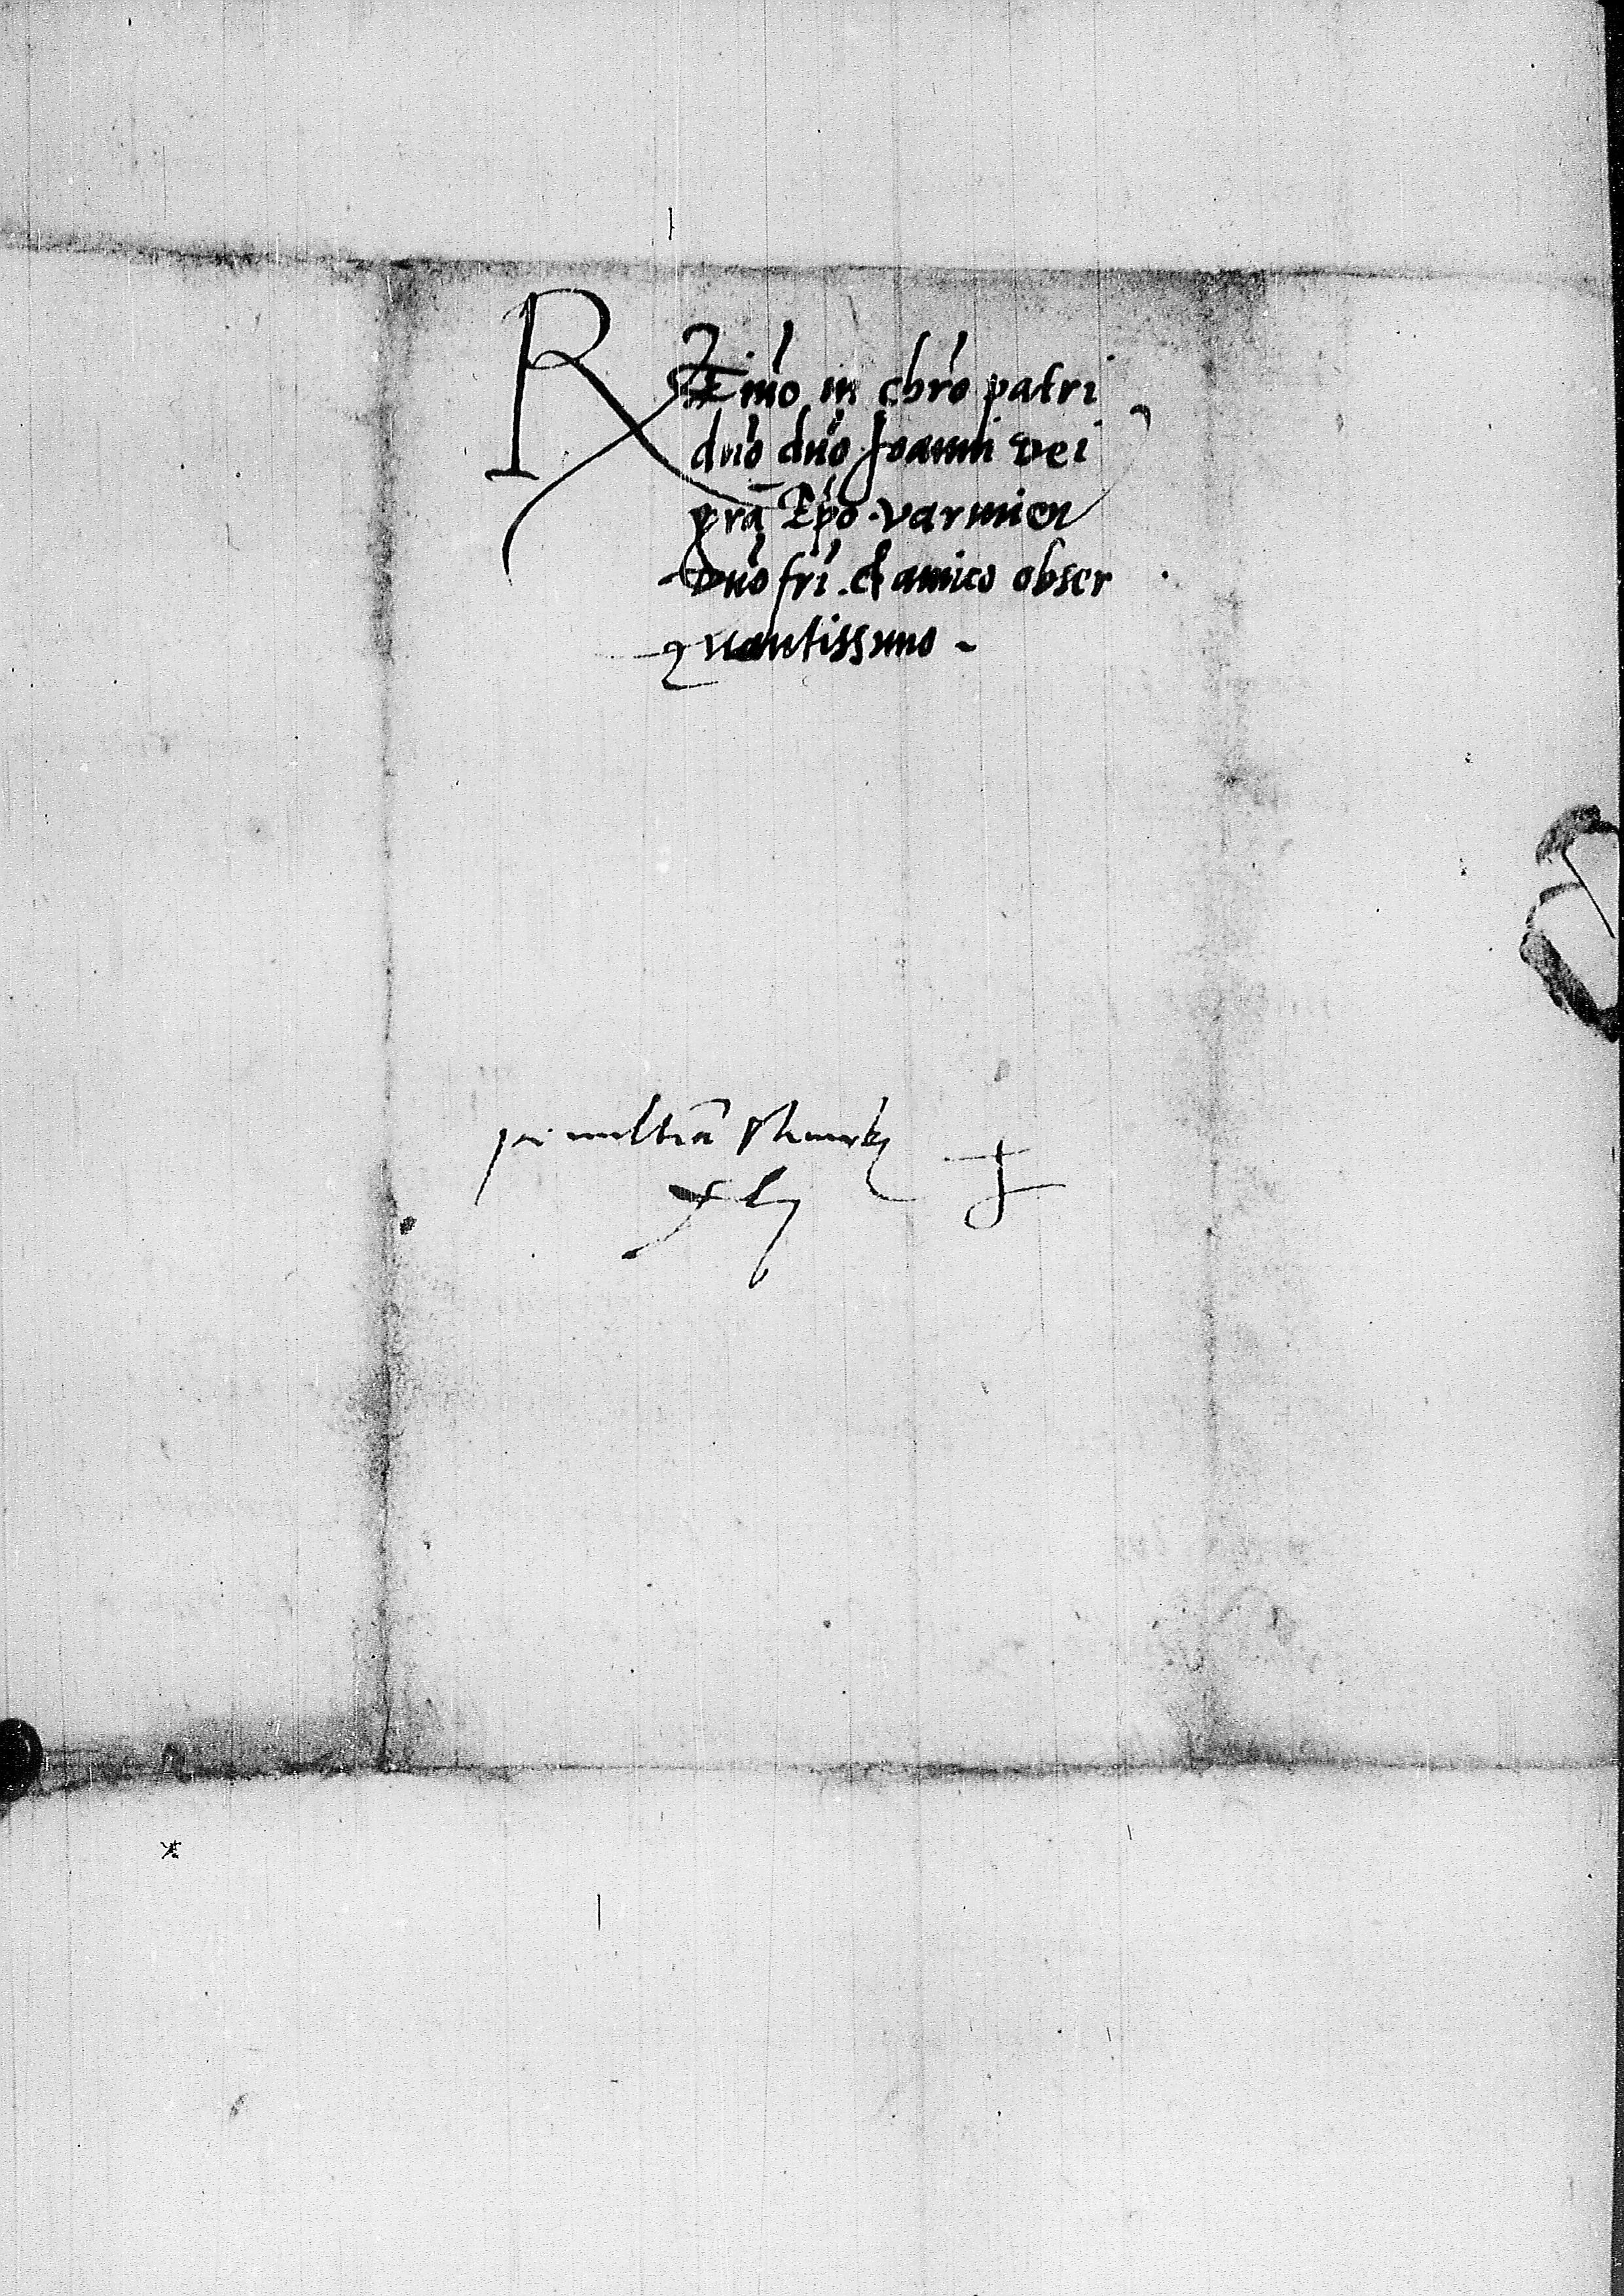 R Eimo in chro patri
dno dno Joanni Dei
gra Epo. varmien
Dno fri. et amico obser
vantissimo.